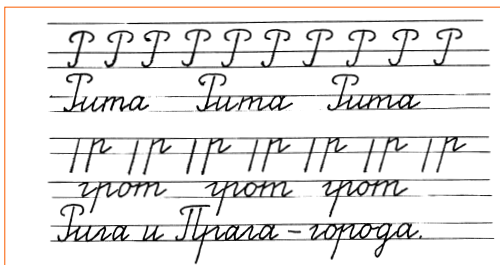 Р Р Р Р Р Р Р Р Р Р
Рита Рита Рита
|р |р |р |р |р |р |р
грот грот грот
Рига и Прага – города.